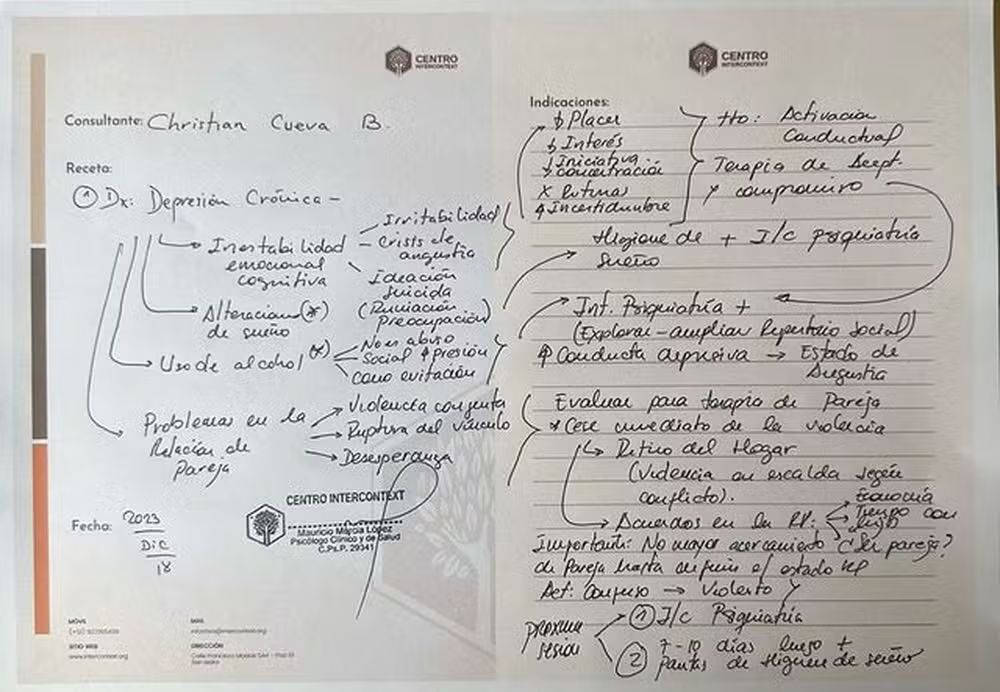 CENTRO
INTERCONTEXT
Consultante: Christian Cueva B.
Receta:
① Dx: Depresión Crónica -
Inestabilidad
emocional
cognitiva
Irritabilidad
- Crisis de
angustia
Ideación
suicida
(Rumiación
Preocupación)
Alteración (*)
de sueño
Uso de alcohol (*)
No es abuso
Social ↑ Presión
Como evitación
Problemas en la
Relación de
pareja
Violencia conjunta
Ruptura del vínculo
Desesperanza
CENTRO INTERCONTEXT
Mauricio Murcia López
Psicólogo Clínico y de Salud
C.Ps.P. 29341
Fecha: 2023
Dic
18
MÓVIL
SITIO WEB
www.intercontext.org
MAIL
informes@intercontext.org
DIRECCIÓN
CENTRO
INTERCONTEXT
Indicaciones:
↓ Placer
↓ Interés
↓ Iniciativa
↓ concentración
X Rutinas
↑ Incertidumbre
tto: Activación
Conductual
Terapia de Acept.
y compromiso
Higiene de + I/c psiquiatría
Sueño
Int. Psiquiatría +
(Explorar - ampliar Repertorio Social)
↑ Conducta depresiva → Estado de
Angustia
Evaluar para terapia de Pareja
* Cese inmediato de la violencia
Retiro del Hogar
(Violencia en escalda según
conflicto).
Acuerdos en la RP:
Economía
Tiempo con
hijos
Importante: No mayor acercamiento ¿Ser pareja?
de Pareja hasta definir el estado RP
Act: Confuso → Violento
próxima
sesión
① I/c Psiquiatría
② 7-10 días luego +
Pautas de Higiene de sueño